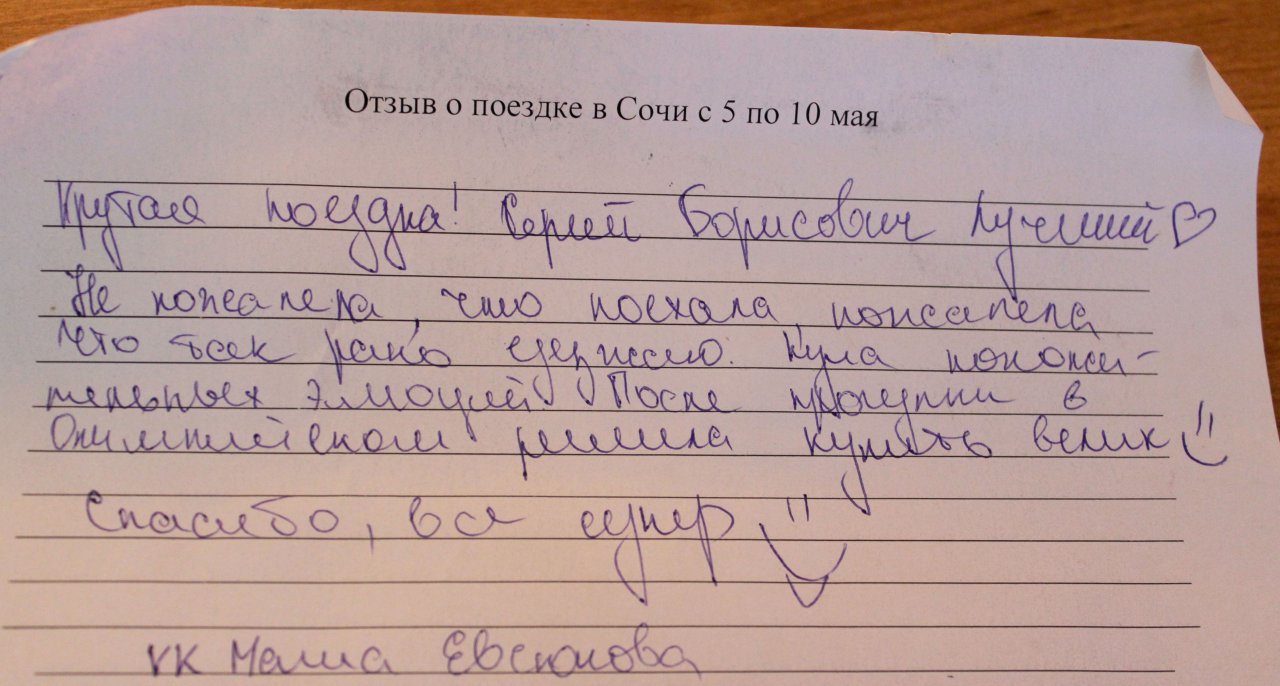 Отзыв о поездке в Сочи с 5 по 10 мая
Крутая поездка! Сергей Борисович лучший♡
Не пожалела, что поехала, пожалела
что так рано уезжаю. Куча положи-
тельных эмоций! После прогулки в
Олимпийском решила купить велик
Спасибо, все супер
VK Маша